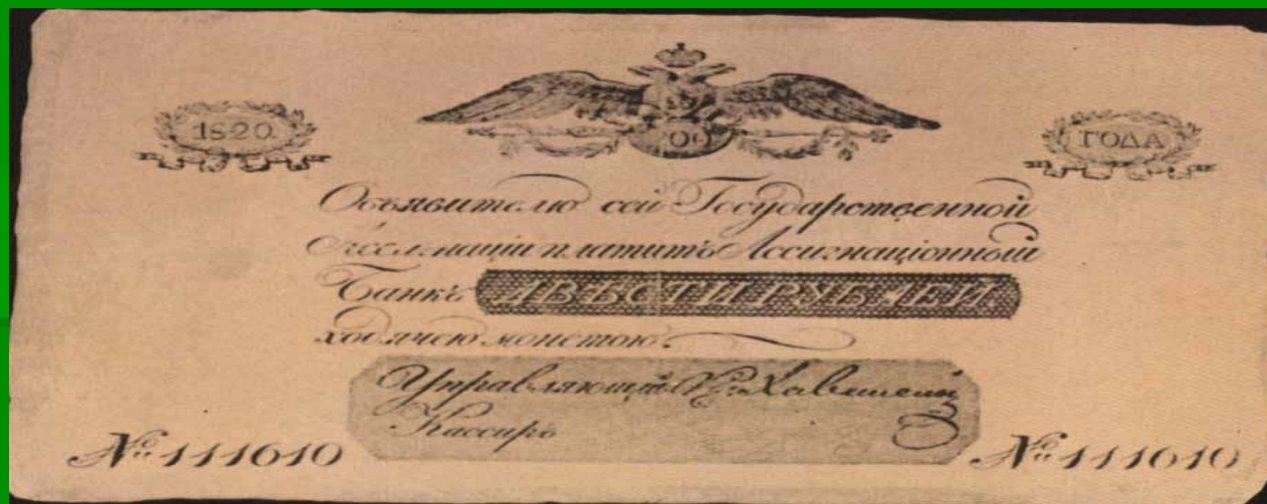 1820.
ГОДА
Объявителю сей Государственной
Ассигнаціи платитъ Ассигнаціонный
Банкъ ДВѢСТИ РУБЛЕЙ
ходячею монетою.
Управляющій
Кассиръ
№ 111610 № 111610